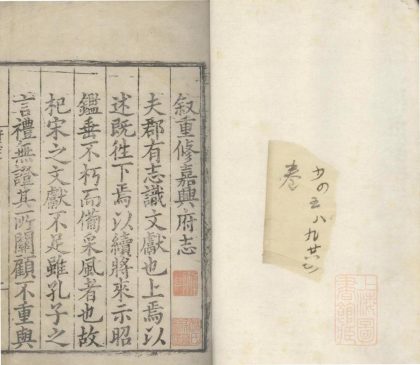 上海圖書館藏
五八九廿
卷
叙重修嘉興府志
夫郡有志識文獻也上焉以
述既徃下焉以續將來示昭
鑑垂不朽而備采風者也故
杞宋之文獻不足雖孔子之
言禮無證其所關顧不重與